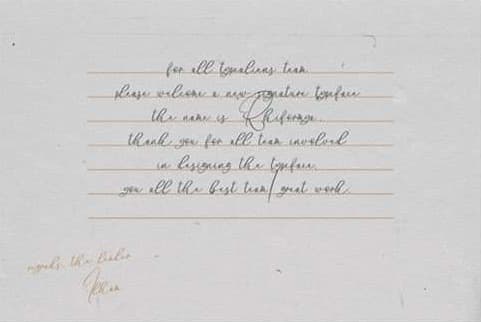 for all typealiens team
please welcome a new signature typeface
the name is Rhiformga.
thank you for all team involved
in designing the typeface.
you all the best team/great work.
regards, the leader